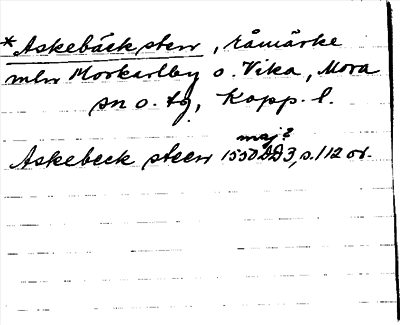 *Askebäcksten, råmärke
mln Morkarlby o. Vika, Mora
sn o. tg, Kopp. l.
maj?
Askebeck steen 1550 DD3, s. 112 or.